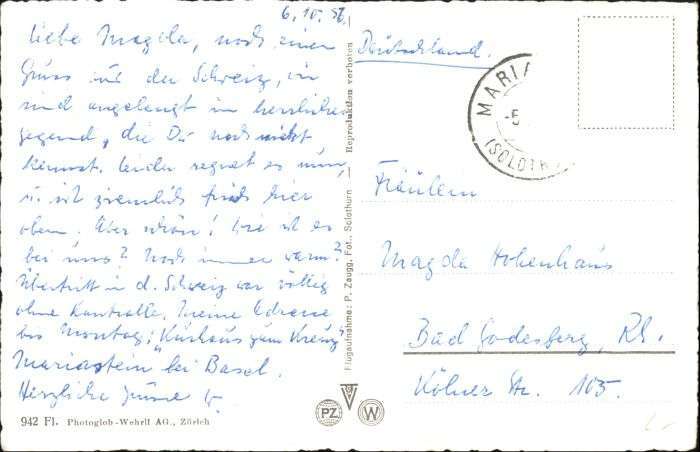 6.10.56.
Liebe Magda, noch einen
Gruss aus der Schweiz, wir
sind angelangt in herrlicher
Gegend, die Du noch nicht
kennst. Leider regnet es nun,
u. ist ziemlich frisch hier
oben. Aber schön! Wie ist es
bei uns? Noch immer warm?
Übertritt in d. Schweiz war völlig
ohne Kontrolle. Meine Adresse
bis Montag: "Kurhaus zum Kreuz"
Mariastein bei Basel.
Herzliche Grüsse W.
942 Fl. Photoglob-Wehrli AG., Zürich
Flugaufnahme: P. Zaugg, Fot., Solothurn — Reproduktion verboten
PZ W
Deutschland.
MARIA
-5
(SOLOTH
Fräulein
Magda Hohenhaus
Bad Godesberg, Rh.
Kölner Str. 105.